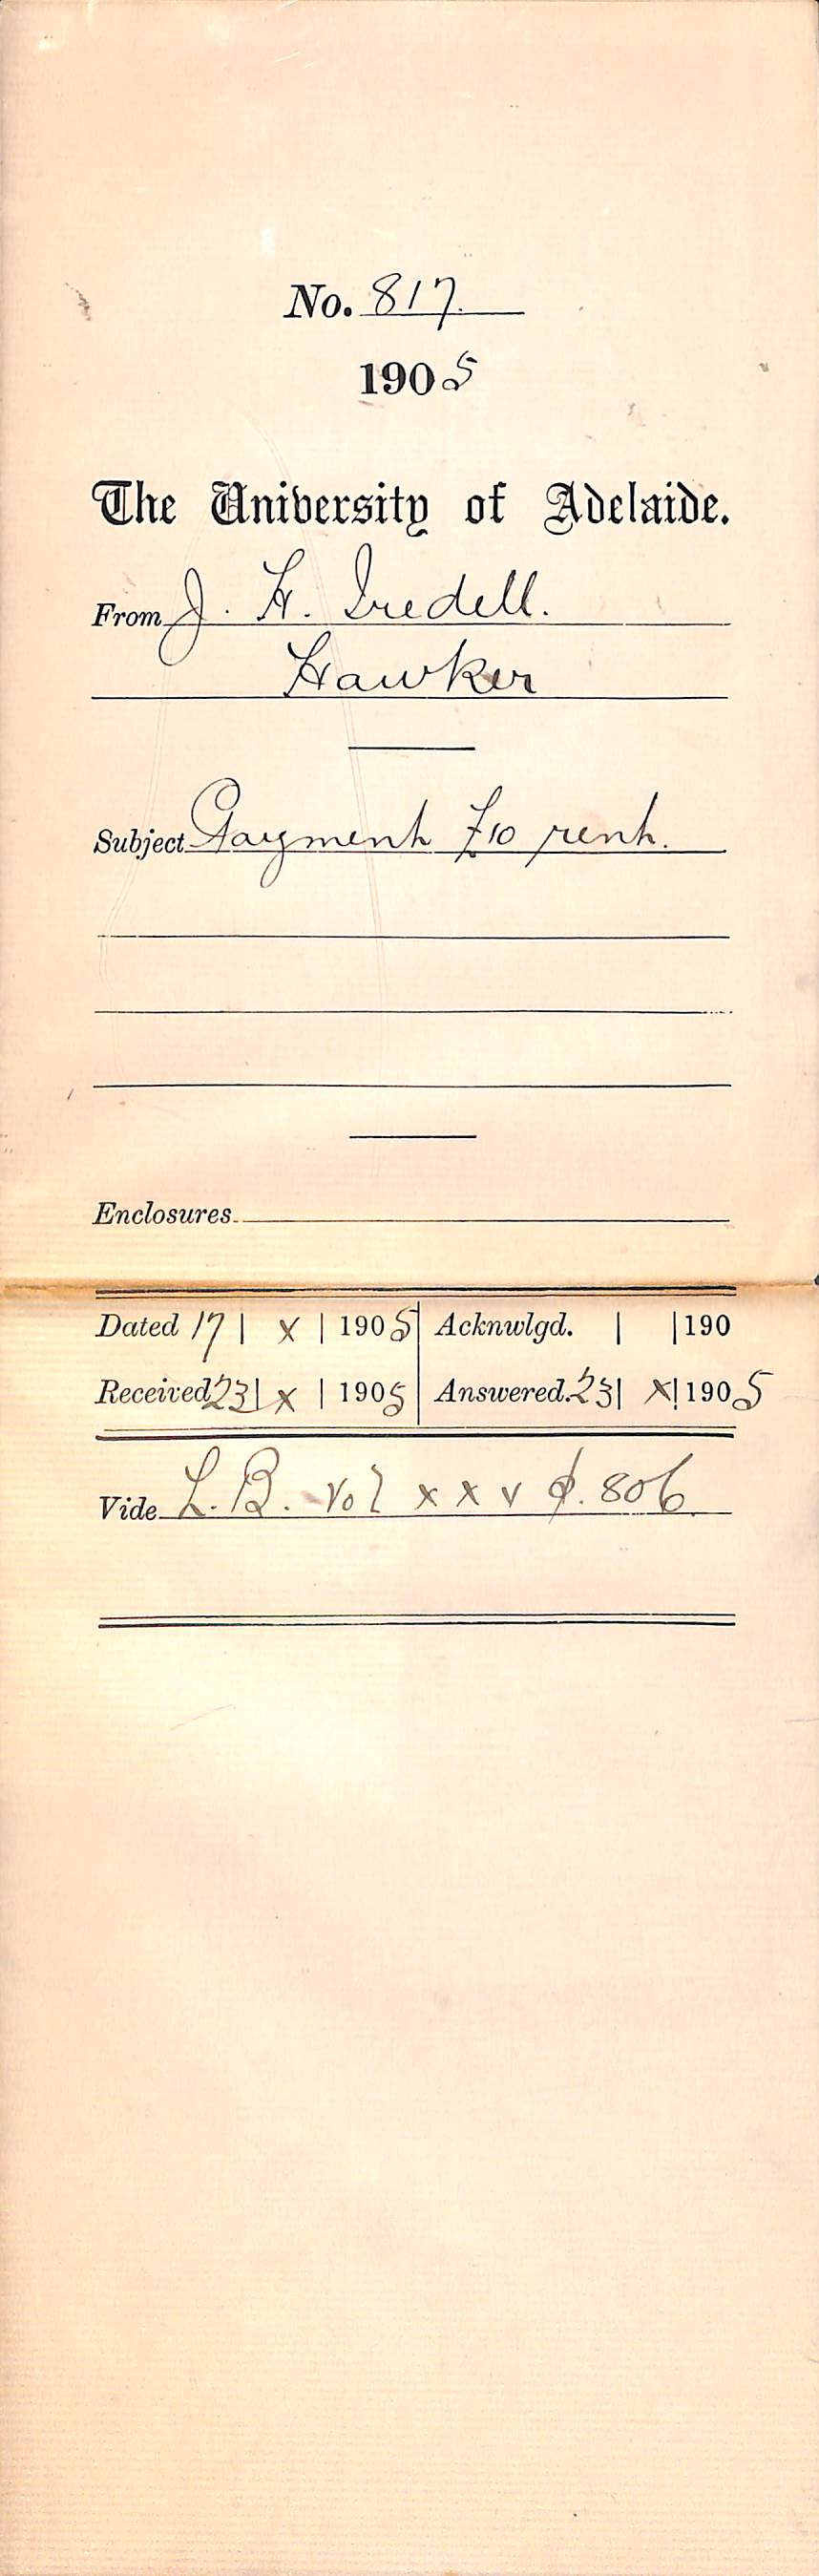 No. 817.
1905
The University of Adelaide.
From J. H. Iredell.
Hawker
Subject Payment £10 rent.
Enclosures
Dated 17 | X | 1905 | Acknwlgd. | | 190
Received 23 | X | 1905 | Answered. 23 | X | 1905
Vide L.B. Vol XXV p. 806